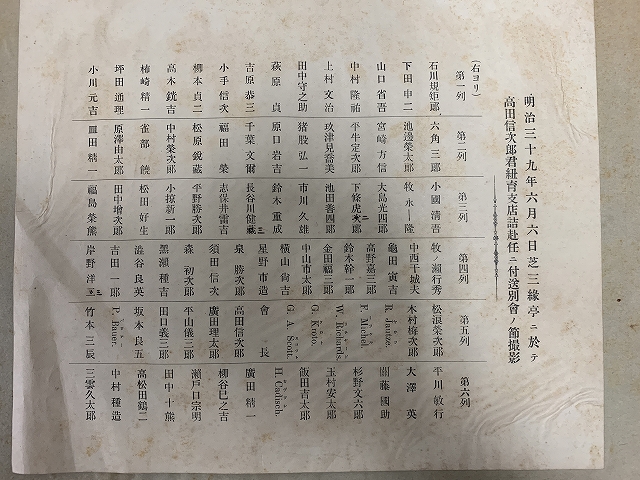 明治三十九年六月六日芝三緣亭ニ於テ
高田信次郎君紐育支店詰赴任ニ付送別會ノ節撮影
(右ヨリ)
第一列
石川規矩郎
下田申二
山口省吾
中村隆祐
上村文治
田中守之助
萩原貞
吉原恭三
小手信次
柳本貞二
高木銑吉
柿崎精一
坪田通理
小川元吉
第二列
六角三郎
池邊榮太郎
宮崎方信
平牛定次郎
玖津見喬美
猪股弘一
原口岩吉
千葉文爾
福田榮
松原銳藏
中村榮次郎
雀部饒
原澤由太郎
皿田精一
第三列
小國清吾
牧永一隆
大島光四郎
下條虎次郎
池田善四郎
市川久雄
鈴木重成
長谷川健藏
志保井雷吉
平野勝次郎
小掠新一郎
松田好生
田中增次郎
福島榮熊
第四列
牧ノ瀬行秀
中西千城夫
龜田寅吉
高野嘉三郎
鈴木幹一郎
金田福三郎
中山市太郎
橫山尙吉
星野市造
泉勝次郎
須田信次
森初次郎
黑瀬種吉
澁谷良英
吉田一郎
岸野洋
第五列
松浪榮次郎
木村梅次郎
R. Jantze.
F. Michel.
W. Richards.
G. Knolo.
G. A. Scott.
會長
高田信次郎
廣田理太郎
平山儀三郎
田口義三郎
坂本良五
P. Bauer.
竹本三辰
第六列
平川敏行
大澤英
關藤國助
杉野文六郎
玉村安太郎
飯田吉太郎
H. Cadisch.
廣田精一
柳谷巳之吉
瀬戸口宗明
田中十熊
高松田鶴二
中村種造
三雲久太郎